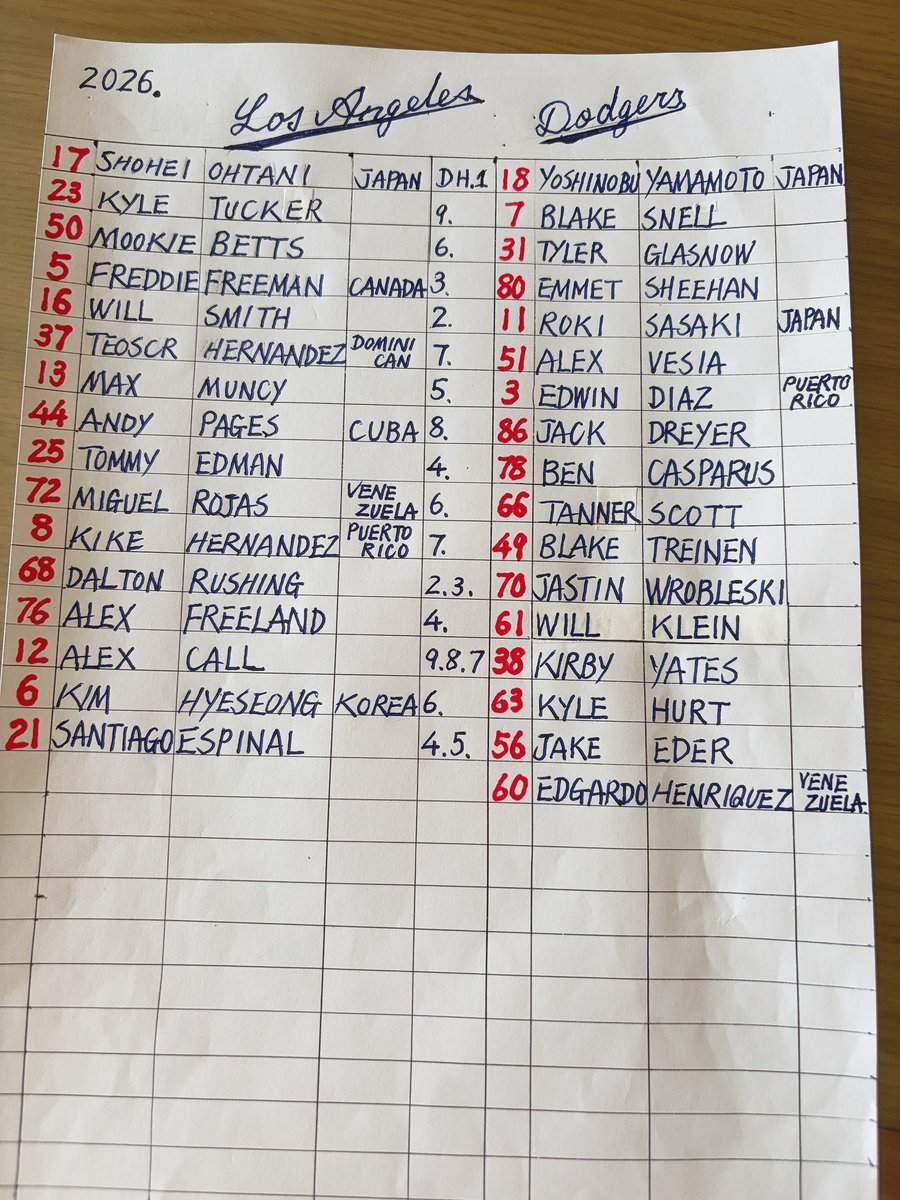 2026.
Los Angeles Dodgers
17 SHOHEI OHTANI JAPAN DH.1 18 YOSHINOBU YAMAMOTO JAPAN
23 KYLE TUCKER 9. 7 BLAKE SNELL
50 MOOKIE BETTS 6. 31 TYLER GLASNOW
5 FREDDIE FREEMAN CANADA 3. 80 EMMET SHEEHAN
16 WILL SMITH 2. 11 ROKI SASAKI JAPAN
37 TEOSCR HERNANDEZ DOMINI CAN 7. 51 ALEX VESIA
13 MAX MUNCY 5. 3 EDWIN DIAZ PUERTO RICO
44 ANDY PAGES CUBA 8. 86 JACK DREYER
25 TOMMY EDMAN 4. 78 BEN CASPARUS
72 MIGUEL ROJAS VENE ZUELA 6. 66 TANNER SCOTT
8 KIKE HERNANDEZ PUERTO RICO 7. 49 BLAKE TREINEN
68 DALTON RUSHING 2.3. 70 JASTIN WROBLESKI
76 ALEX FREELAND 4. 61 WILL KLEIN
12 ALEX CALL 9.8.7 38 KIRBY YATES
6 KIM HYESEONG KOREA 6. 63 KYLE HURT
21 SANTIAGO ESPINAL 4.5. 56 JAKE EDER
60 EDGARDO HENRIQUEZ VENE ZUELA